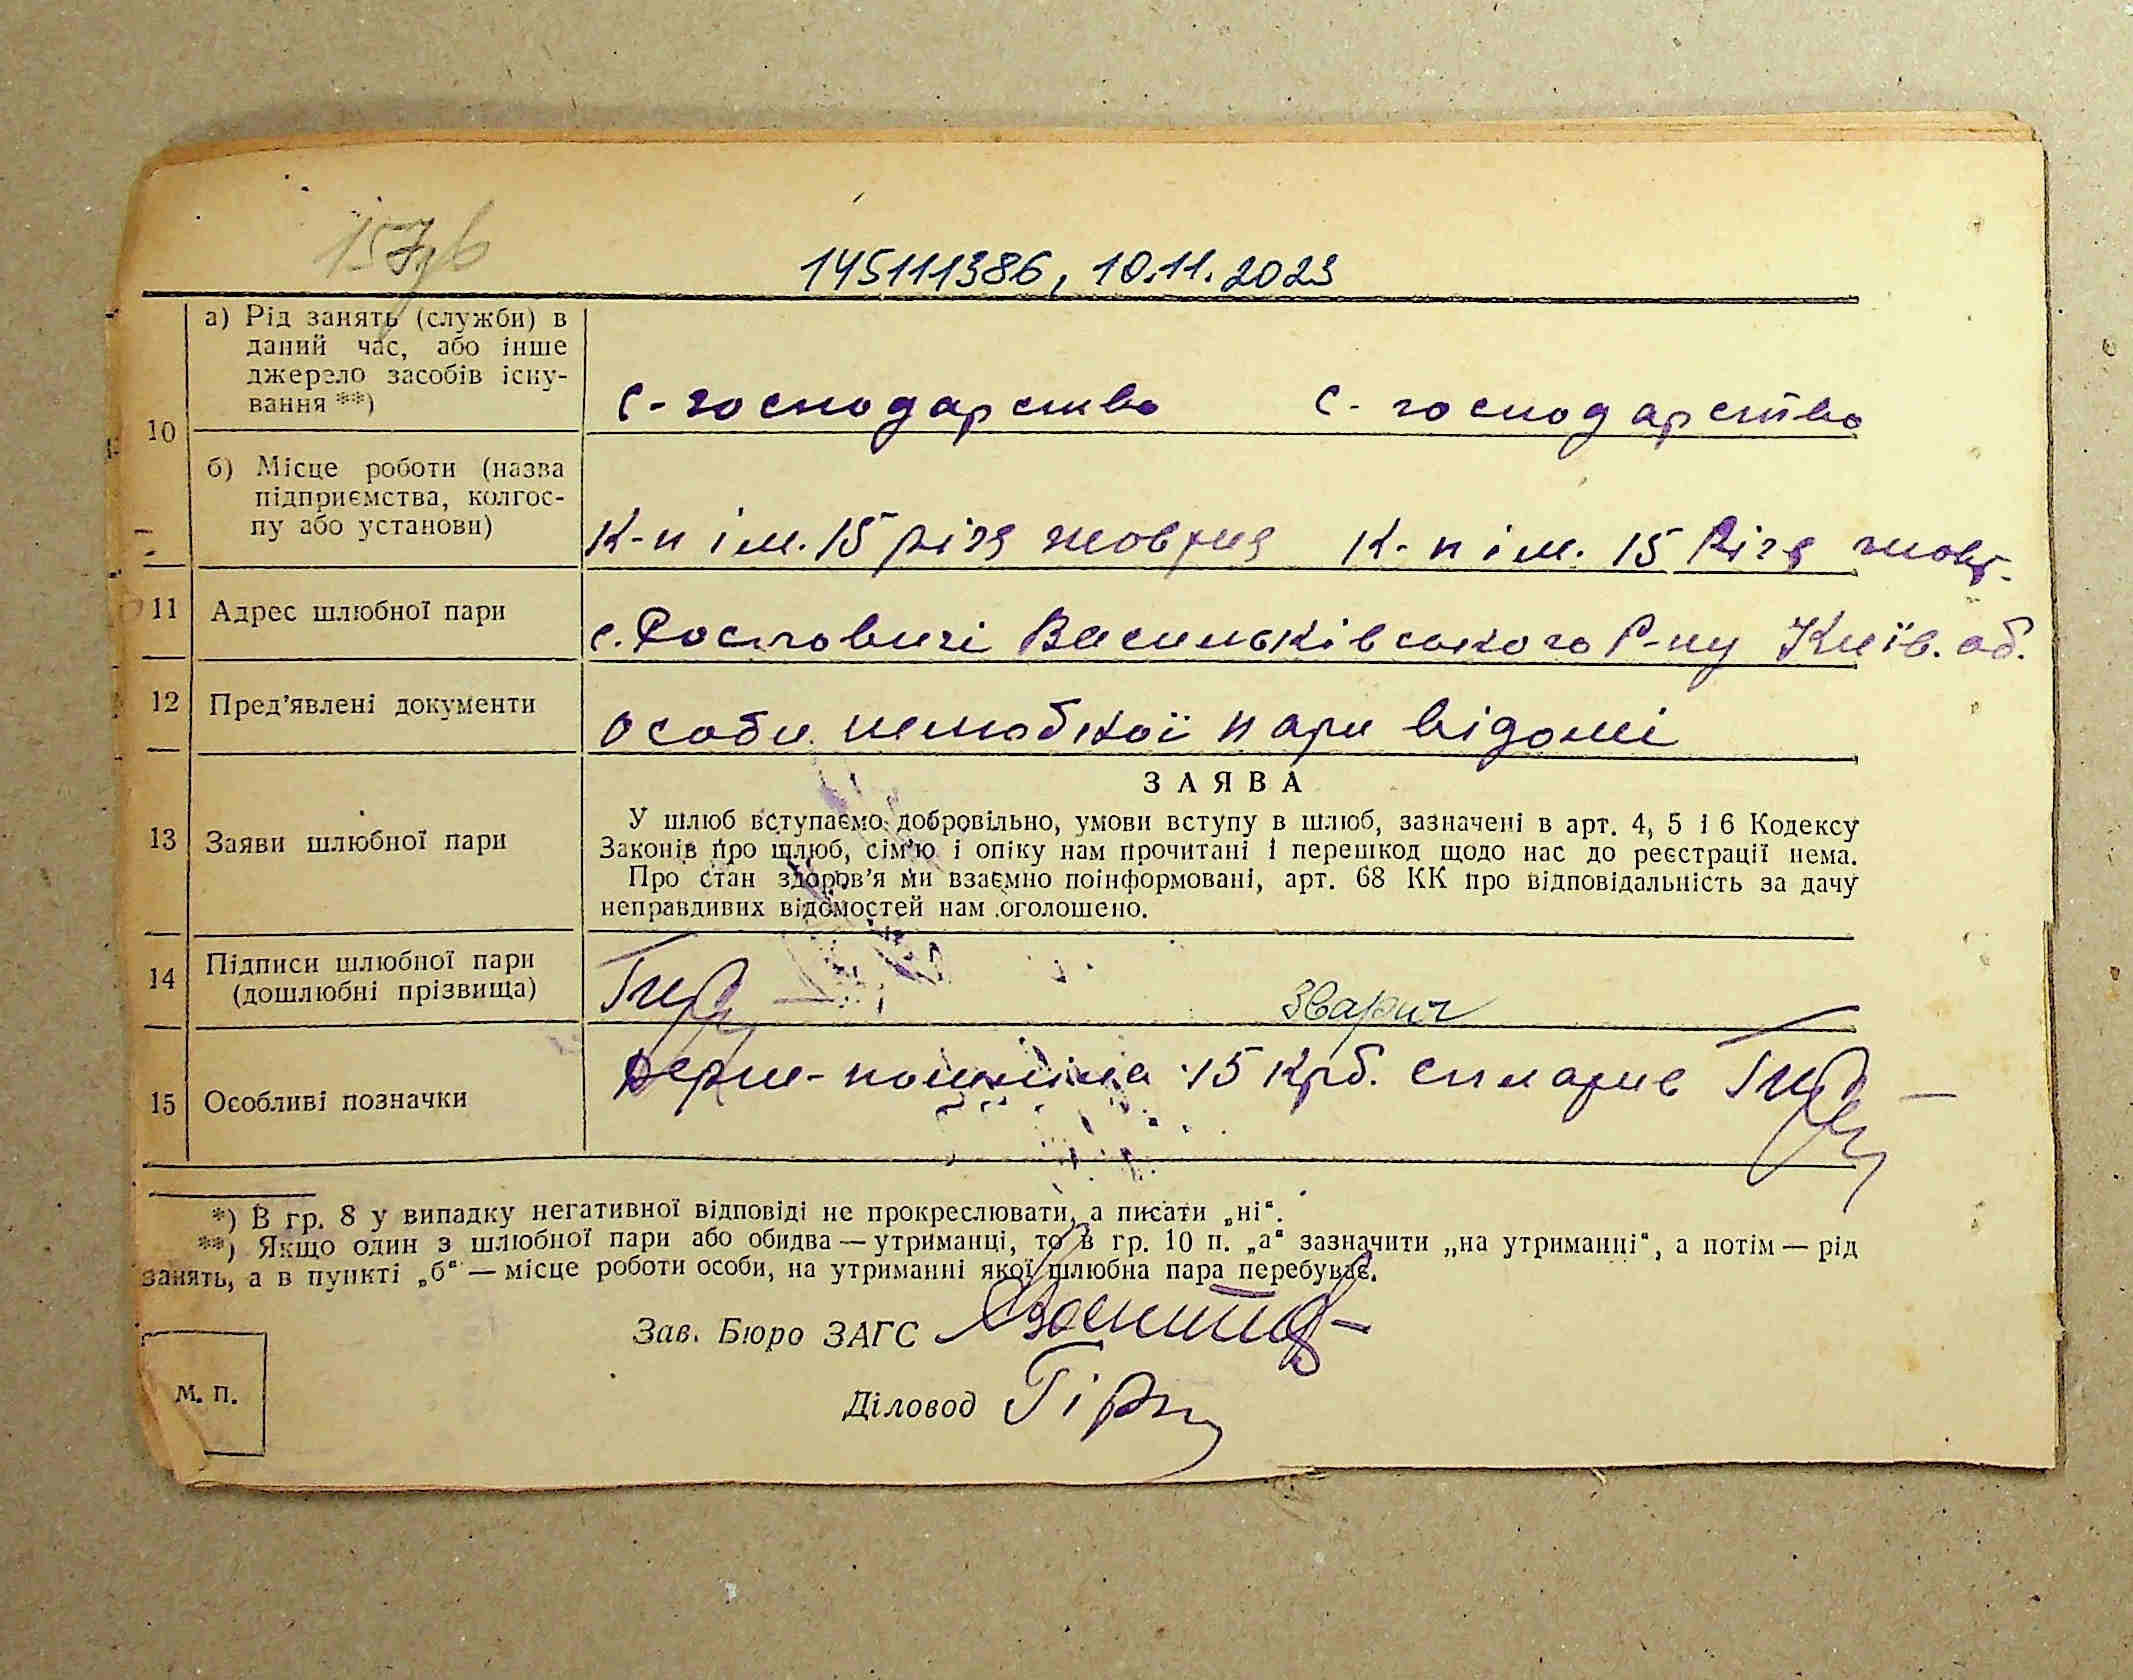 145111386, 10.11.2023
10
а) Рід занять (служби) в
даний час, або інше
джерело засобів існу-
вання **)
с-господарство с-господарство
б) Місце роботи (назва
підприємства, колгос-
пу або установи)
К-п ім. 15 річя жовтня К-п ім. 15 річя жовт.
11 Адрес шлюбної пари
с. Ростовичі Васильківського р-ну Київ. об.
12 Пред’явлені документи
особи шлюбної пари відомі
13 Заяви шлюбної пари
ЗАЯВА
У шлюб вступаємо добровільно, умови вступу в шлюб, зазначені в арт. 4, 5 і 6 Кодексу
Законів про шлюб, сім’ю і опіку нам прочитані і перешкод щодо нас до реєстрації нема.
Про стан здоров’я ми взаємно поінформовані, арт. 68 КК про відповідальність за дачу
неправдивих відомостей нам оголошено.
14 Підписи шлюбної пари
(дошлюбні прізвища)
Зварич
15 Особливі позначки
Держ-пошлина 15 крб. сплатив
*) В гр. 8 у випадку негативної відповіді не прокреслювати, а писати „ні“.
**) Якщо один з шлюбної пари або обидва — утриманці, то в гр. 10 п. „а“ зазначити „на утриманні“, а потім — рід
занять, а в пункті „б“ — місце роботи особи, на утриманні якої шлюбна пара перебуває.
Зав. Бюро ЗАГС
Діловод
М. П.